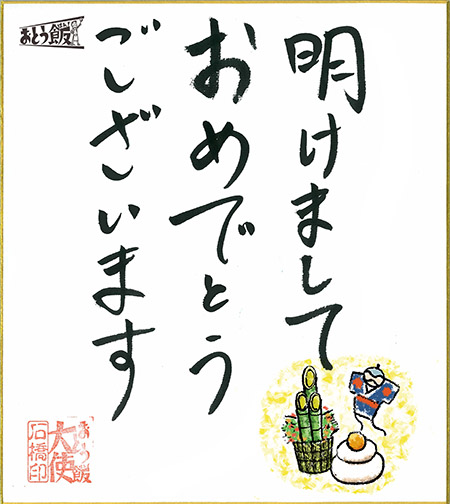 明けまして
おめでとう
ございます
おとう飯
おとう飯
大使
石橋印